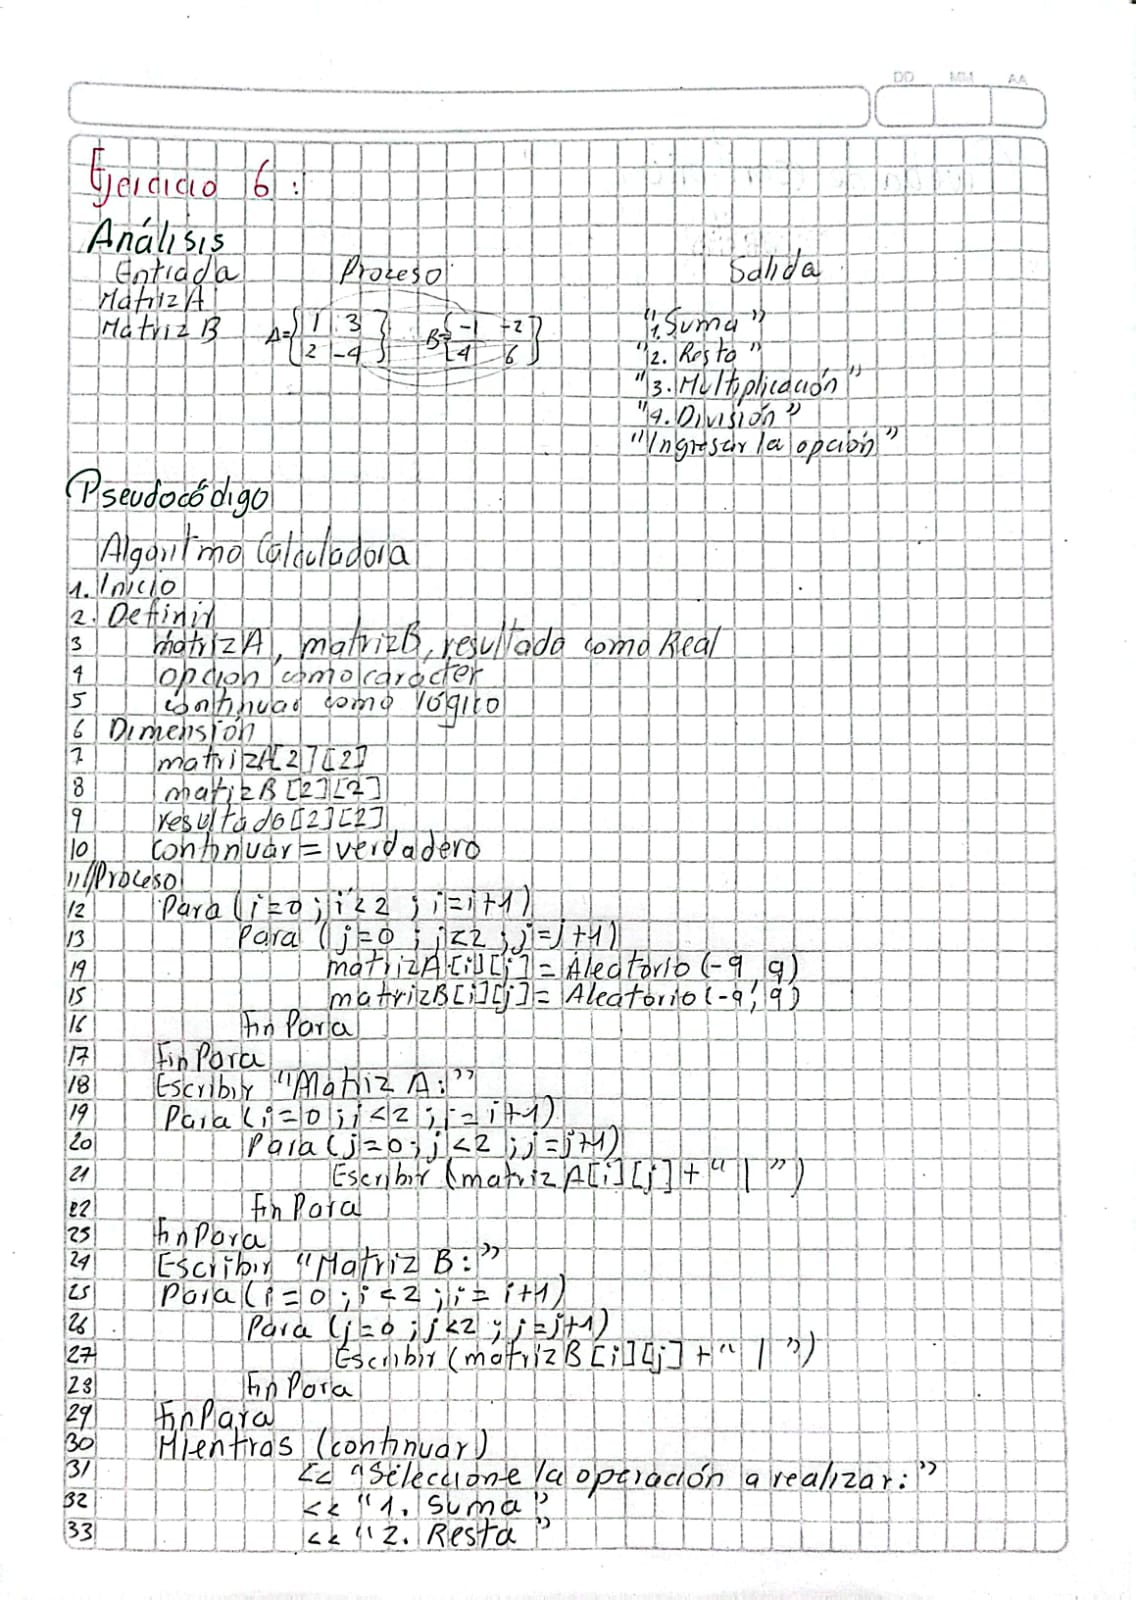 DD MM AA
Ejercicio 6:
Análisis
Entrada Proceso Salida
Matriz A
Matriz B A=[1 3 B=[-1 -2] "1. Suma"
2 -4] 4 6 "2. Resta"
"3. Multiplicación"
"4. División"
"Ingresar la opción"
Pseudocódigo
Algoritmo Calculadora
1. Inicio
2. Definir
3 matrizA, matrizB, resultado como Real
4 opcion como caracter
5 continuar como lógico
6 Dimensión
7 matrizA[2][2]
8 matizB[2][2]
9 resultado[2][2]
10 continuar = verdadero
11 //Proceso
12 Para (i=0 ; i<2 ; i=i+1)
13 Para (j=0 ; j<2 ; j=j+1)
14 matrizA[i][j] = Aleatorio (-9, 9)
15 matrizB[i][j] = Aleatorio (-9, 9)
16 Fin Para
17 Fin Para
18 Escribir "Matriz A:"
19 Para (i=0 ; i<2 ; i=i+1)
20 Para (j=0 ; j<2 ; j=j+1)
21 Escribir (matrizA[i][j] + " | ")
22 Fin Para
23 Fin Para
24 Escribir "Matriz B:"
25 Para (i=0 ; i<2 ; i=i+1)
26 Para (j=0 ; j<2 ; j=j+1)
27 Escribir (matrizB[i][j] + " | ")
28 Fin Para
29 Fin Para
30 Mientras (continuar)
31 << "Seleccione la operación a realizar:"
32 << "1. Suma"
33 << "2. Resta"